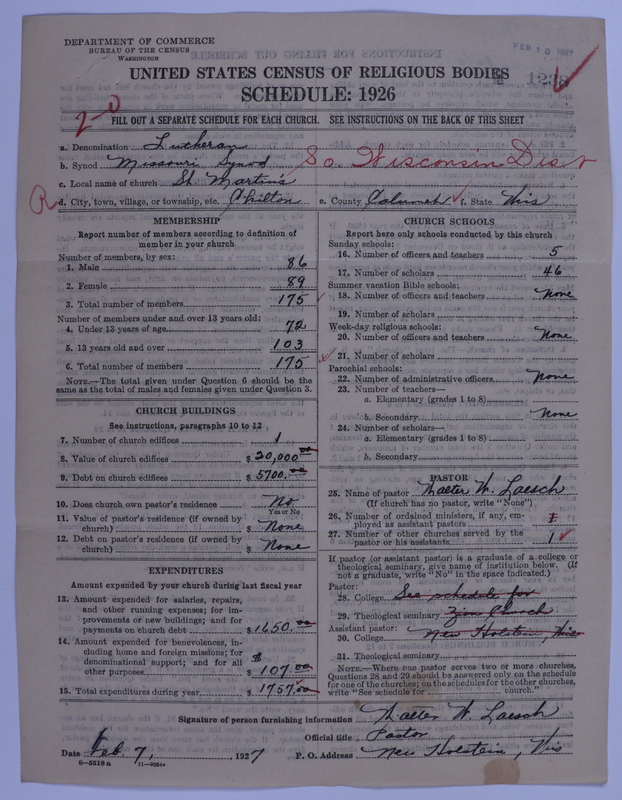 DEPARTMENT OF COMMERCE
BUREAU OF THE CENSUS
WASHINGTON
FEB 10 1927
UNITED STATES CENSUS OF RELIGIOUS BODIES
SCHEDULE: 1926
2-0
FILL OUT A SEPARATE SCHEDULE FOR EACH CHURCH. SEE INSTRUCTIONS ON THE BACK OF THIS SHEET
a. Denomination Lutheran
b. Synod Missouri Synod So. Wisconsin Dist
c. Local name of church St. Martins
R d. City, town, village, or township, etc. Chilton e. County Calumet f. State Wis
MEMBERSHIP
Report number of members according to definition of member in your church
Number of members, by sex:
1. Male 86
2. Female 89
3. Total number of members 175
Number of members under and over 13 years old:
4. Under 13 years of age 72
5. 13 years old and over 103
6. Total number of members 175
NOTE.—The total given under Question 6 should be the same as the total of males and females given under Question 3.
CHURCH BUILDINGS
See instructions, paragraphs 10 to 12
7. Number of church edifices 1
8. Value of church edifices $ 20,000.00
9. Debt on church edifices $ 5700.00
10. Does church own pastor's residence? No
Yes or No
11. Value of pastor's residence (if owned by church) $ None
12. Debt on pastor's residence (if owned by church) $ None
EXPENDITURES
Amount expended by your church during last fiscal year
13. Amount expended for salaries, repairs, and other running expenses; for improvements or new buildings; and for payments on church debt $ 1650.00
14. Amount expended for benevolences, including home and foreign missions; for denominational support; and for all other purposes $ 107.00
15. Total expenditures during year $ 1757.00
CHURCH SCHOOLS
Report here only schools conducted by this church
Sunday schools:
16. Number of officers and teachers 5
17. Number of scholars 46
Summer vacation Bible schools:
18. Number of officers and teachers None
19. Number of scholars
Week-day religious schools:
20. Number of officers and teachers None
21. Number of scholars
Parochial schools:
22. Number of administrative officers None
23. Number of teachers—
a. Elementary (grades 1 to 8)
b. Secondary None
24. Number of scholars—
a. Elementary (grades 1 to 8)
b. Secondary
PASTOR
25. Name of pastor Walter W. Laesch
(If church has no pastor, write "None")
26. Number of ordained ministers, if any, employed as assistant pastors
27. Number of other churches served by the pastor or his assistants 1
If pastor (or assistant pastor) is a graduate of a college or theological seminary, give name of institution below. (If not a graduate, write "No" in the space indicated.)
Pastor:
28. College See schedule for
29. Theological seminary Zion Church
Assistant pastor:
30. College New Holstein, Wis
31. Theological seminary
NOTE.—Where one pastor serves two or more churches, Questions 28 and 29 should be answered only on the schedule for one of the churches; on the schedules for the other churches, write "See schedule for church."
Signature of person furnishing information Walter W. Laesch
Official title Pastor
Date Feb. 7, 1927 P. O. Address New Holstein, Wis
6-5518a